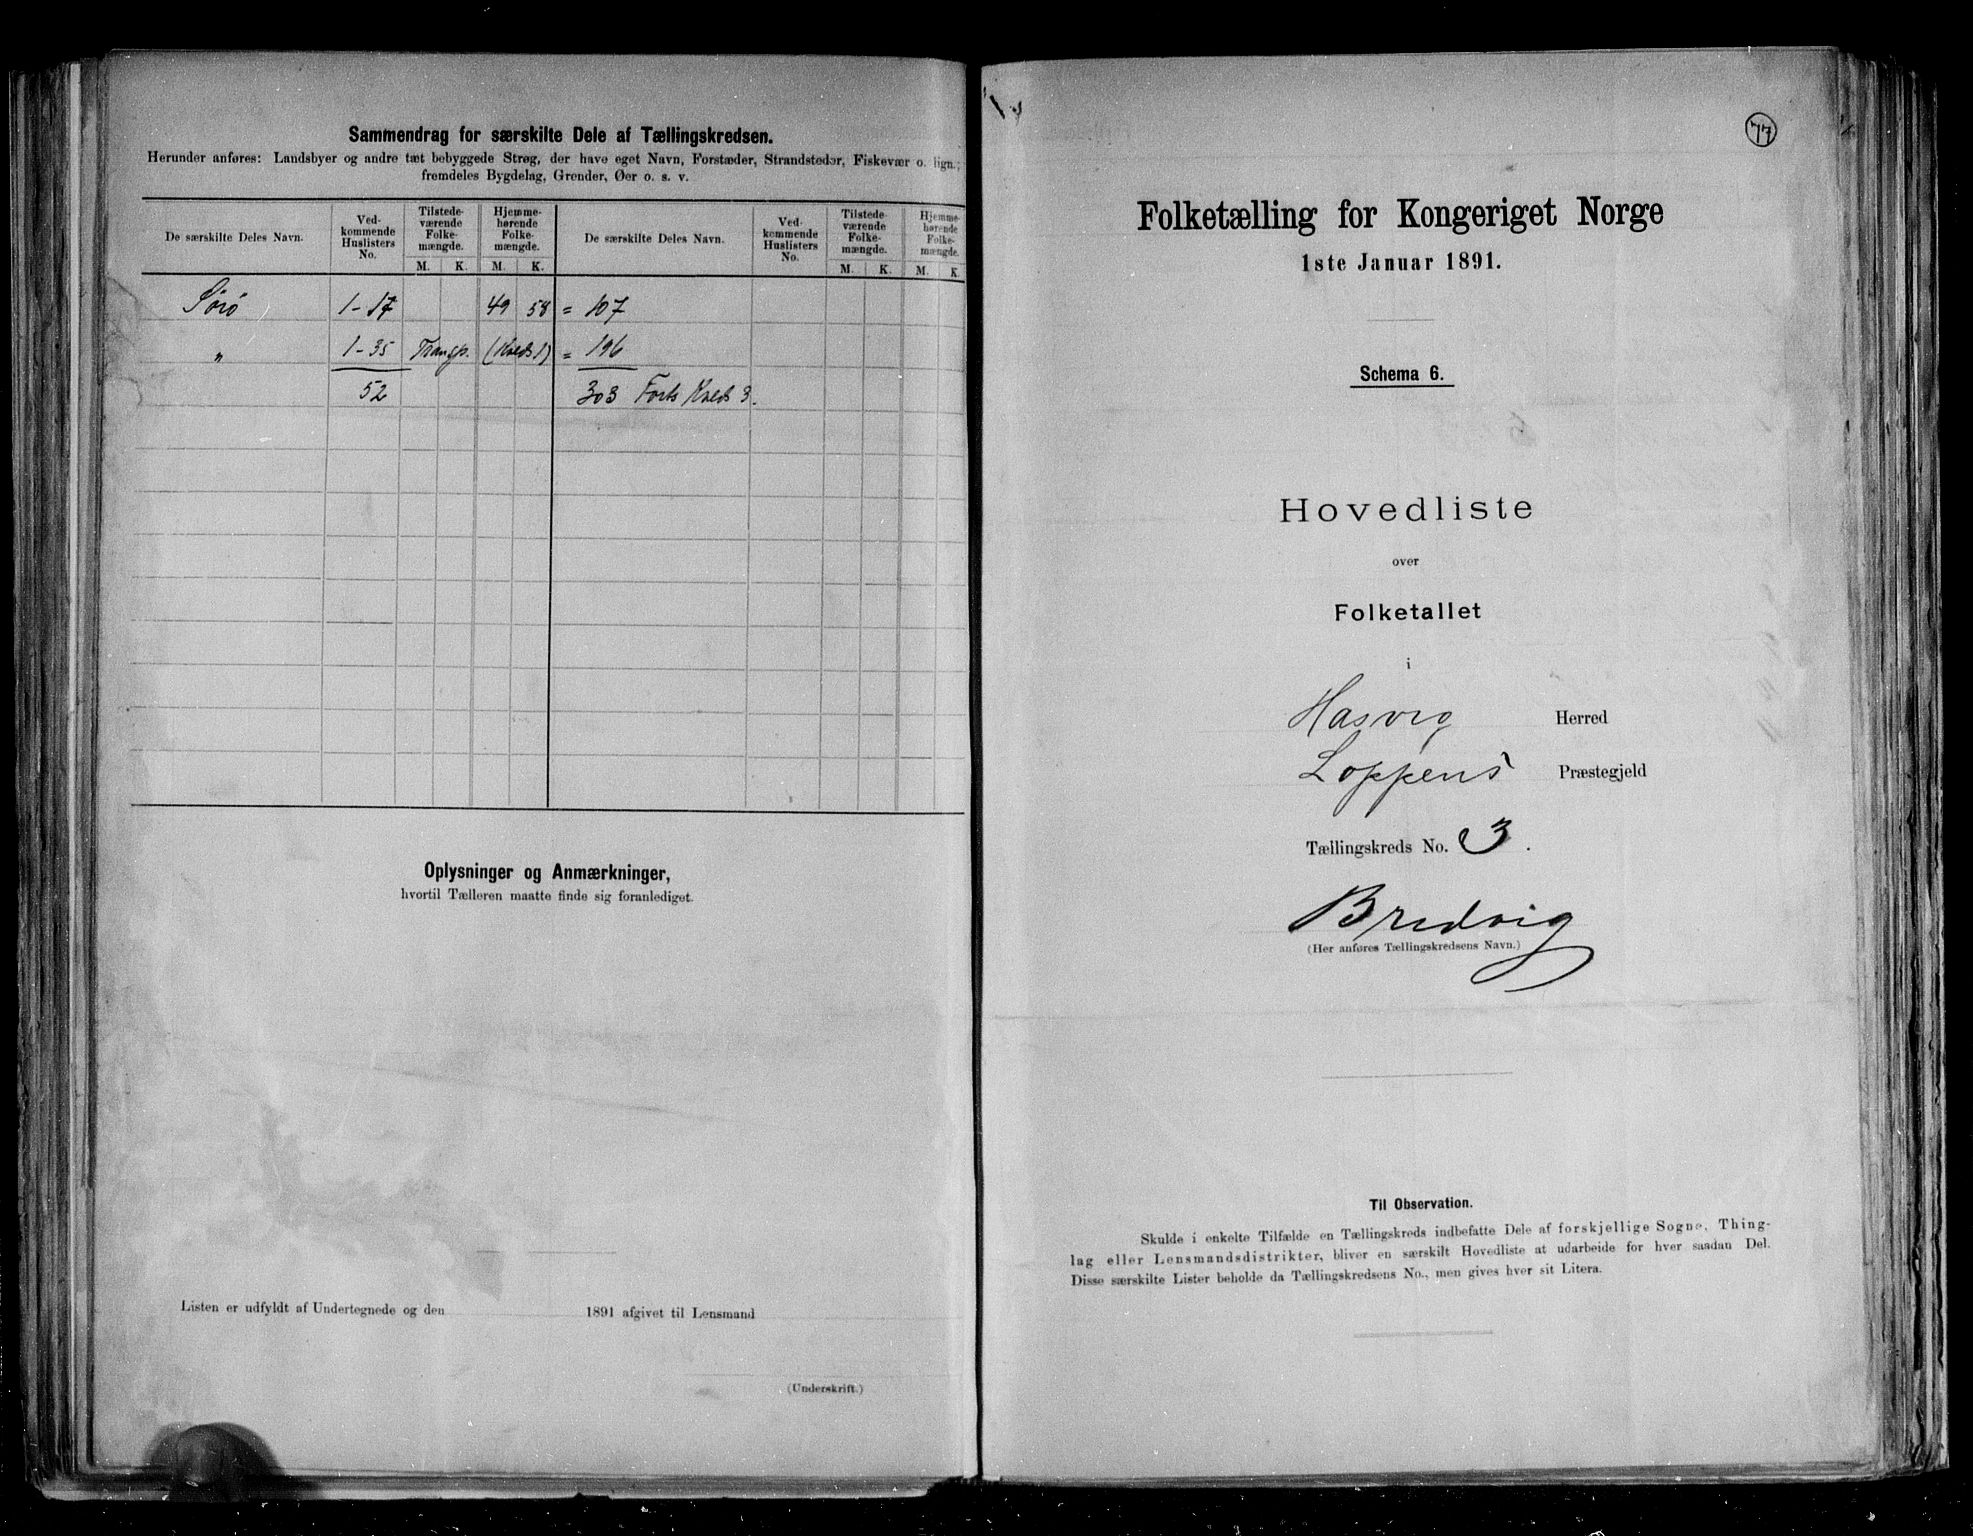 Sammendrag for særskilte Dele af Tællingskredsen.
Herunder anføres: Landsbyer og andre tæt bebyggede Strøg, der have eget Navn, Forstæder, Strandsteder, Fiskevær o. lign.;
fremdeles Bygdelag, Grender, Øer o. s. v.
De særskilte Deles Navn. Ved-kommende Huslisters No. Tilstede-værende Folke-mængde. M. K. Hjemme-hørende Folke-mængde. M. K. De særskilte Deles Navn. Ved-kommende Huslisters No. Tilstede-værende Folke-mængde. M. K. Hjemme-hørende Folke-mængde. M. K.
Sørø 1-17 49 58 = 107
" 1-35 Transp. (Kreds 1) = 196
52 303 Forts Kreds 3.
Oplysninger og Anmærkninger,
hvortil Tælleren maatte finde sig foranlediget.
Listen er udfyldt af Undertegnede og den 1891 afgivet til Lensmand
(Underskrift.)
77
Folketælling for Kongeriget Norge
1ste Januar 1891.
Schema 6.
Hovedliste
over
Folketallet
i
Hasvig Herred
Loppens Præstegjeld
Tællingskreds No. 3.
Bredvig
(Her anføres Tællingskredsens Navn.)
Til Observation.
Skulde i enkelte Tilfælde en Tællingskreds indbefatte Dele af forskjellige Sogne, Thing-
lag eller Lensmandsdistrikter, bliver en særskilt Hovedliste at udarbeide for hver saadan Del.
Disse særskilte Lister beholde da Tællingskredsens No., men gives hver sit Litera.